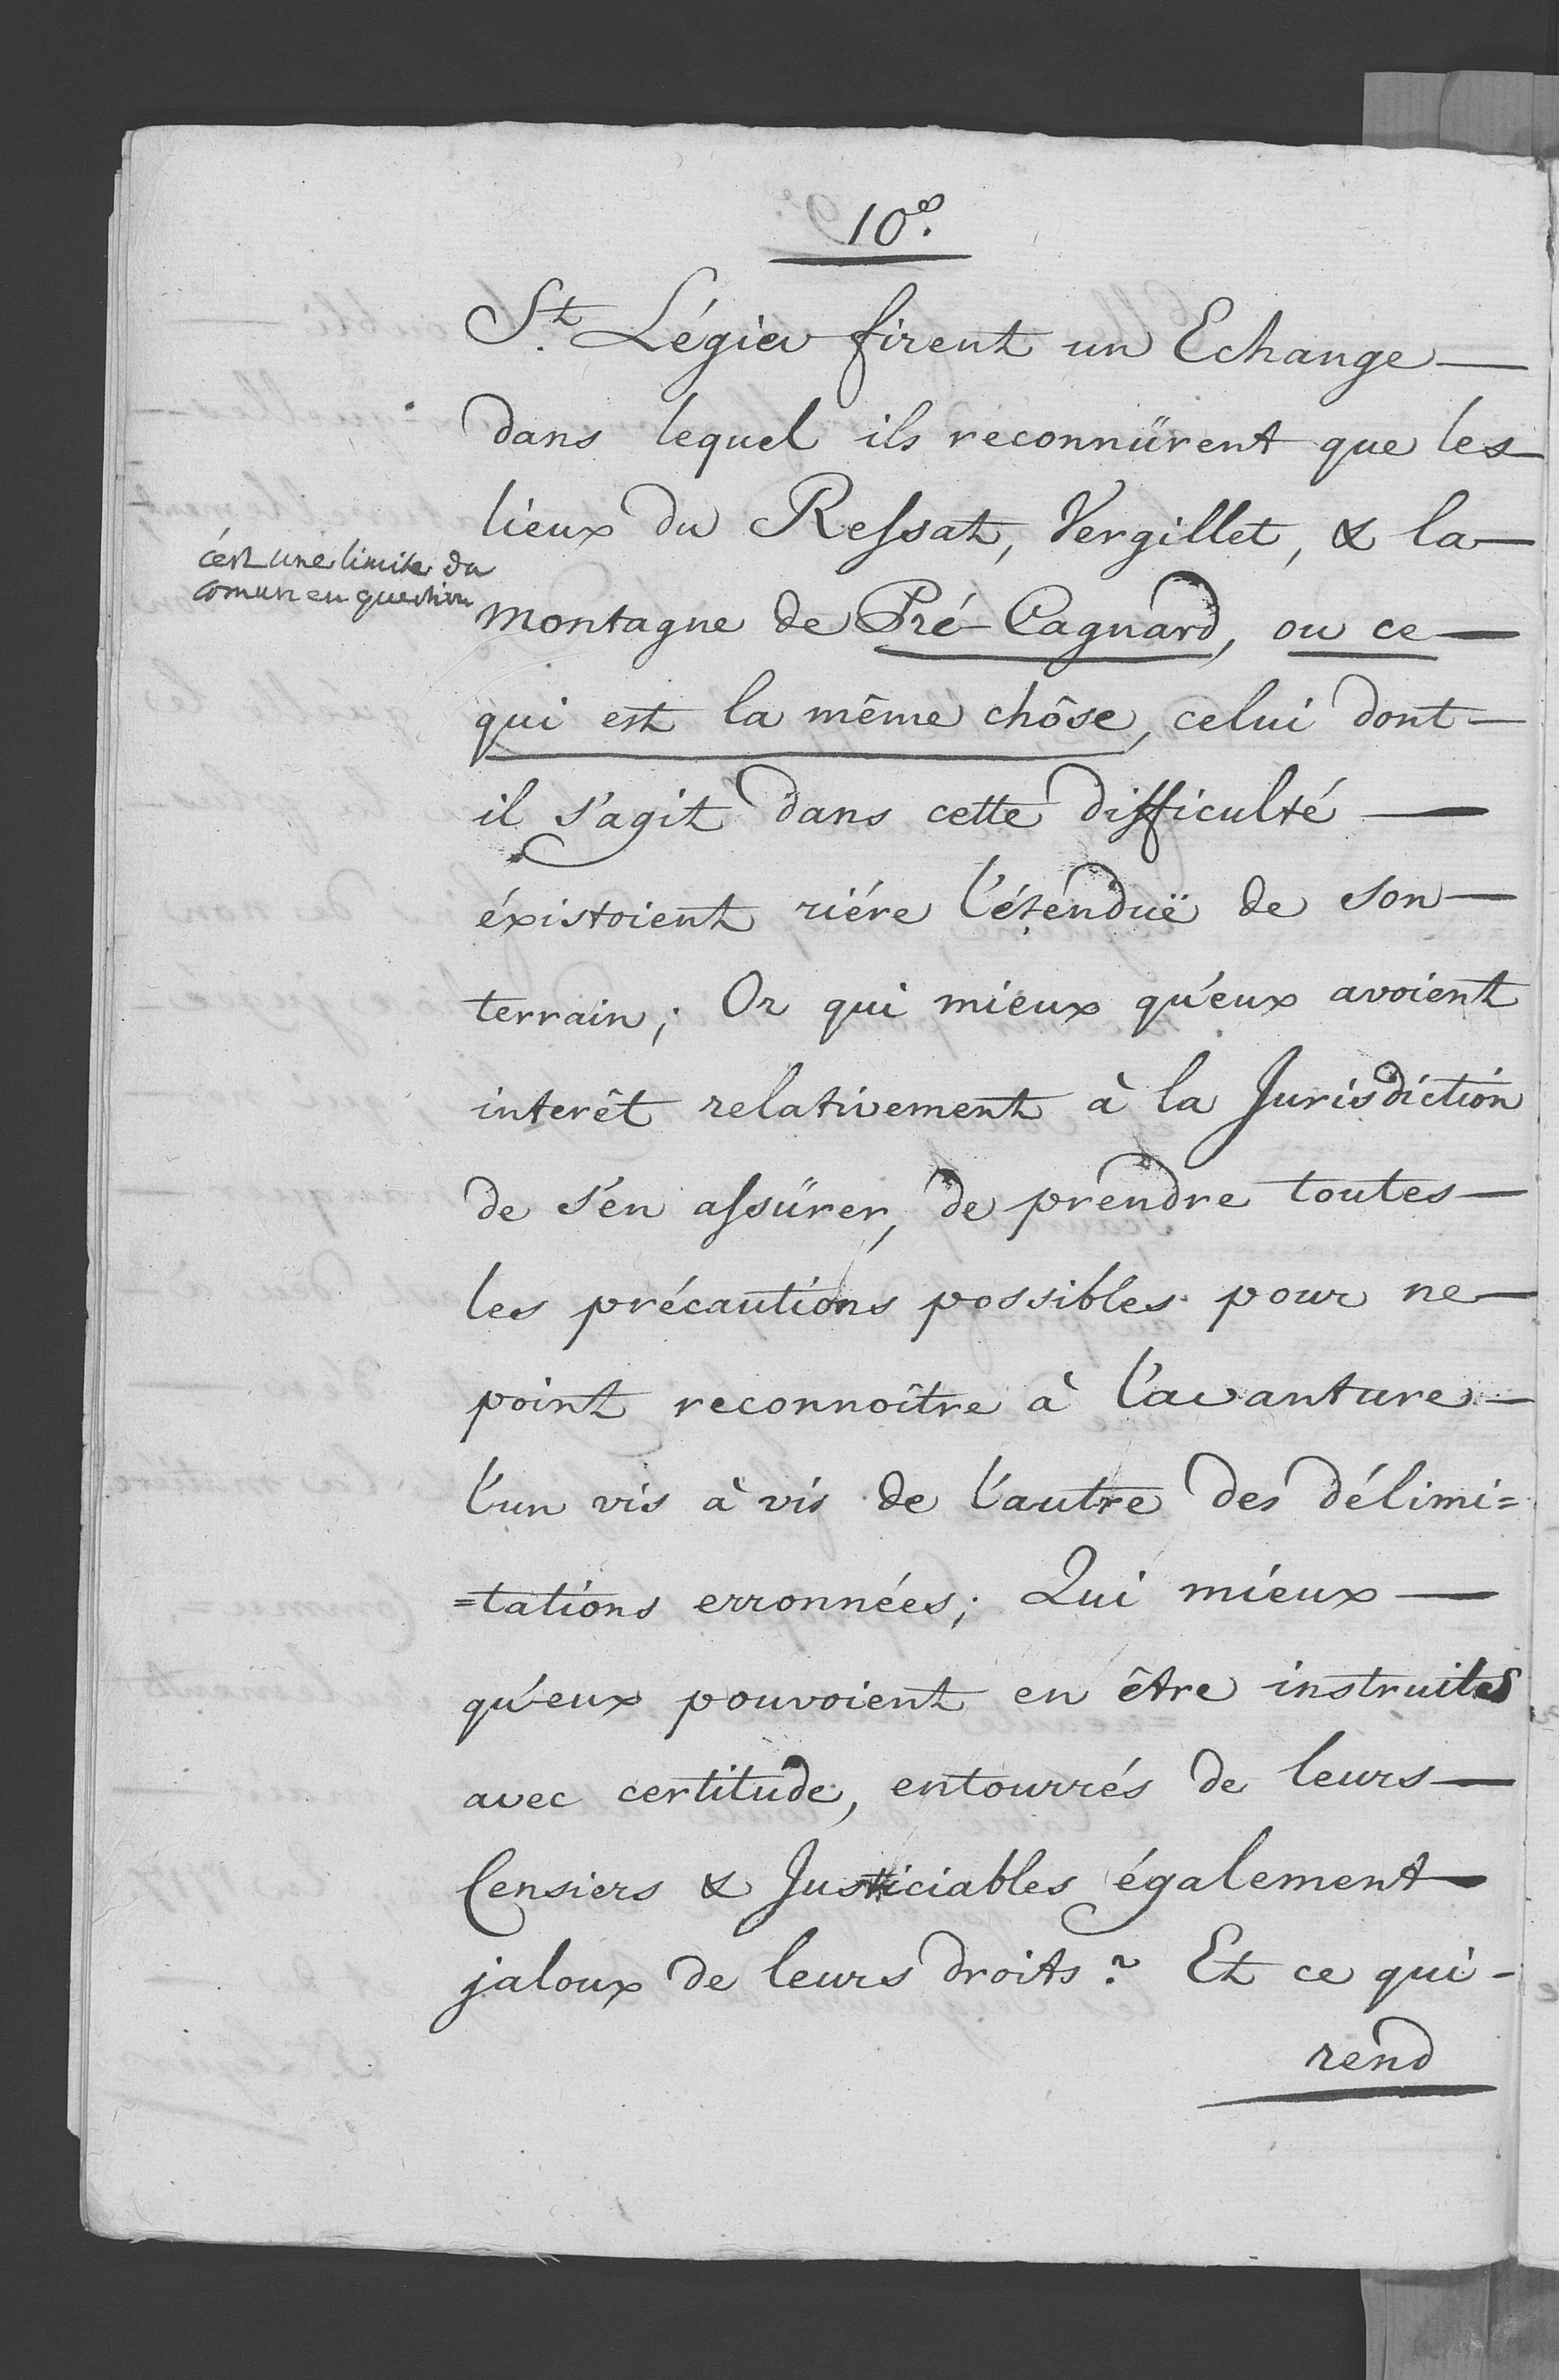 10.°
S.t Légier firent un Echange —
dans lequel ils reconnürent que les —
lieux du Ressat, Vergillet, & la —
c'est une limite du
comun en question
montagne de Pré-Cagnard, ou ce —
qui est la même chôse, celui dont —
il s'agit dans cette difficulté —
éxistoient riére l'étenduë de son —
terrain; Or qui mieux qu'eux avoient
interêt relativement à la Jurisdiction
de s'en assürer, de prendre toutes —
les précautions possibles pour ne —
point reconnoître à l'avanture —
l'un vis à vis de l'autre des délimi=
=tations erronnées; Qui mieux —
qu'eux pouvoient en être instruites
avec certitude, entourrés de leurs —
Censiers & Justiciables également —
jaloux de leurs droits? Et ce qui -
rend